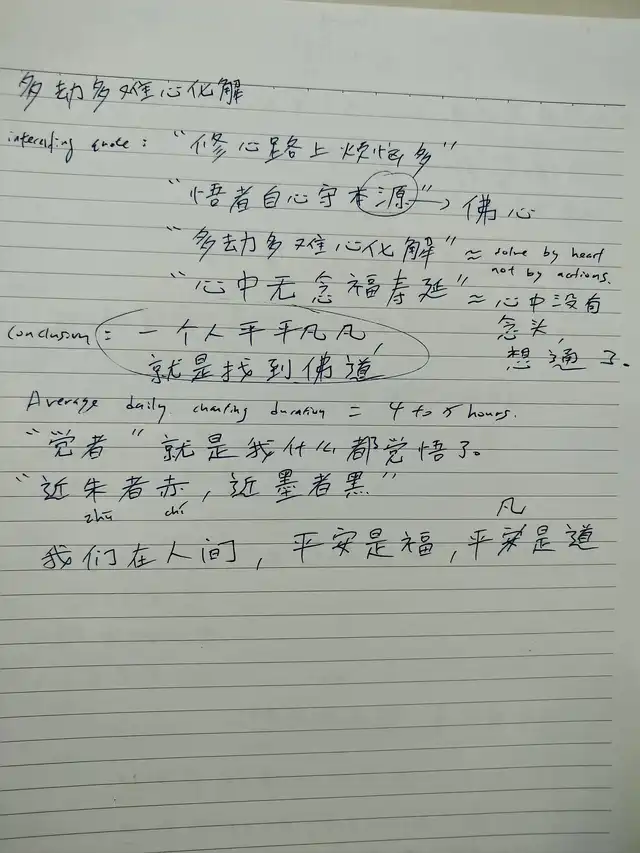 多劫多难心化解
interesting quote: "修心路上烦恼多"
"悟者自心守本源" → 佛心
"多劫多难心化解" ≈ solve by heart
not by actions.
"心中无念福寿延" ≈ 心中没有
念头,
想通了。
Conclusion = 一个人平平凡凡,
就是找到佛道
Average daily chanting duration = 4 to 5 hours.
"觉者"就是我什么都觉悟了。
"近朱者赤, 近墨者黑"
zhū chì
凡
我们在人间, 平安是福, 平安是道